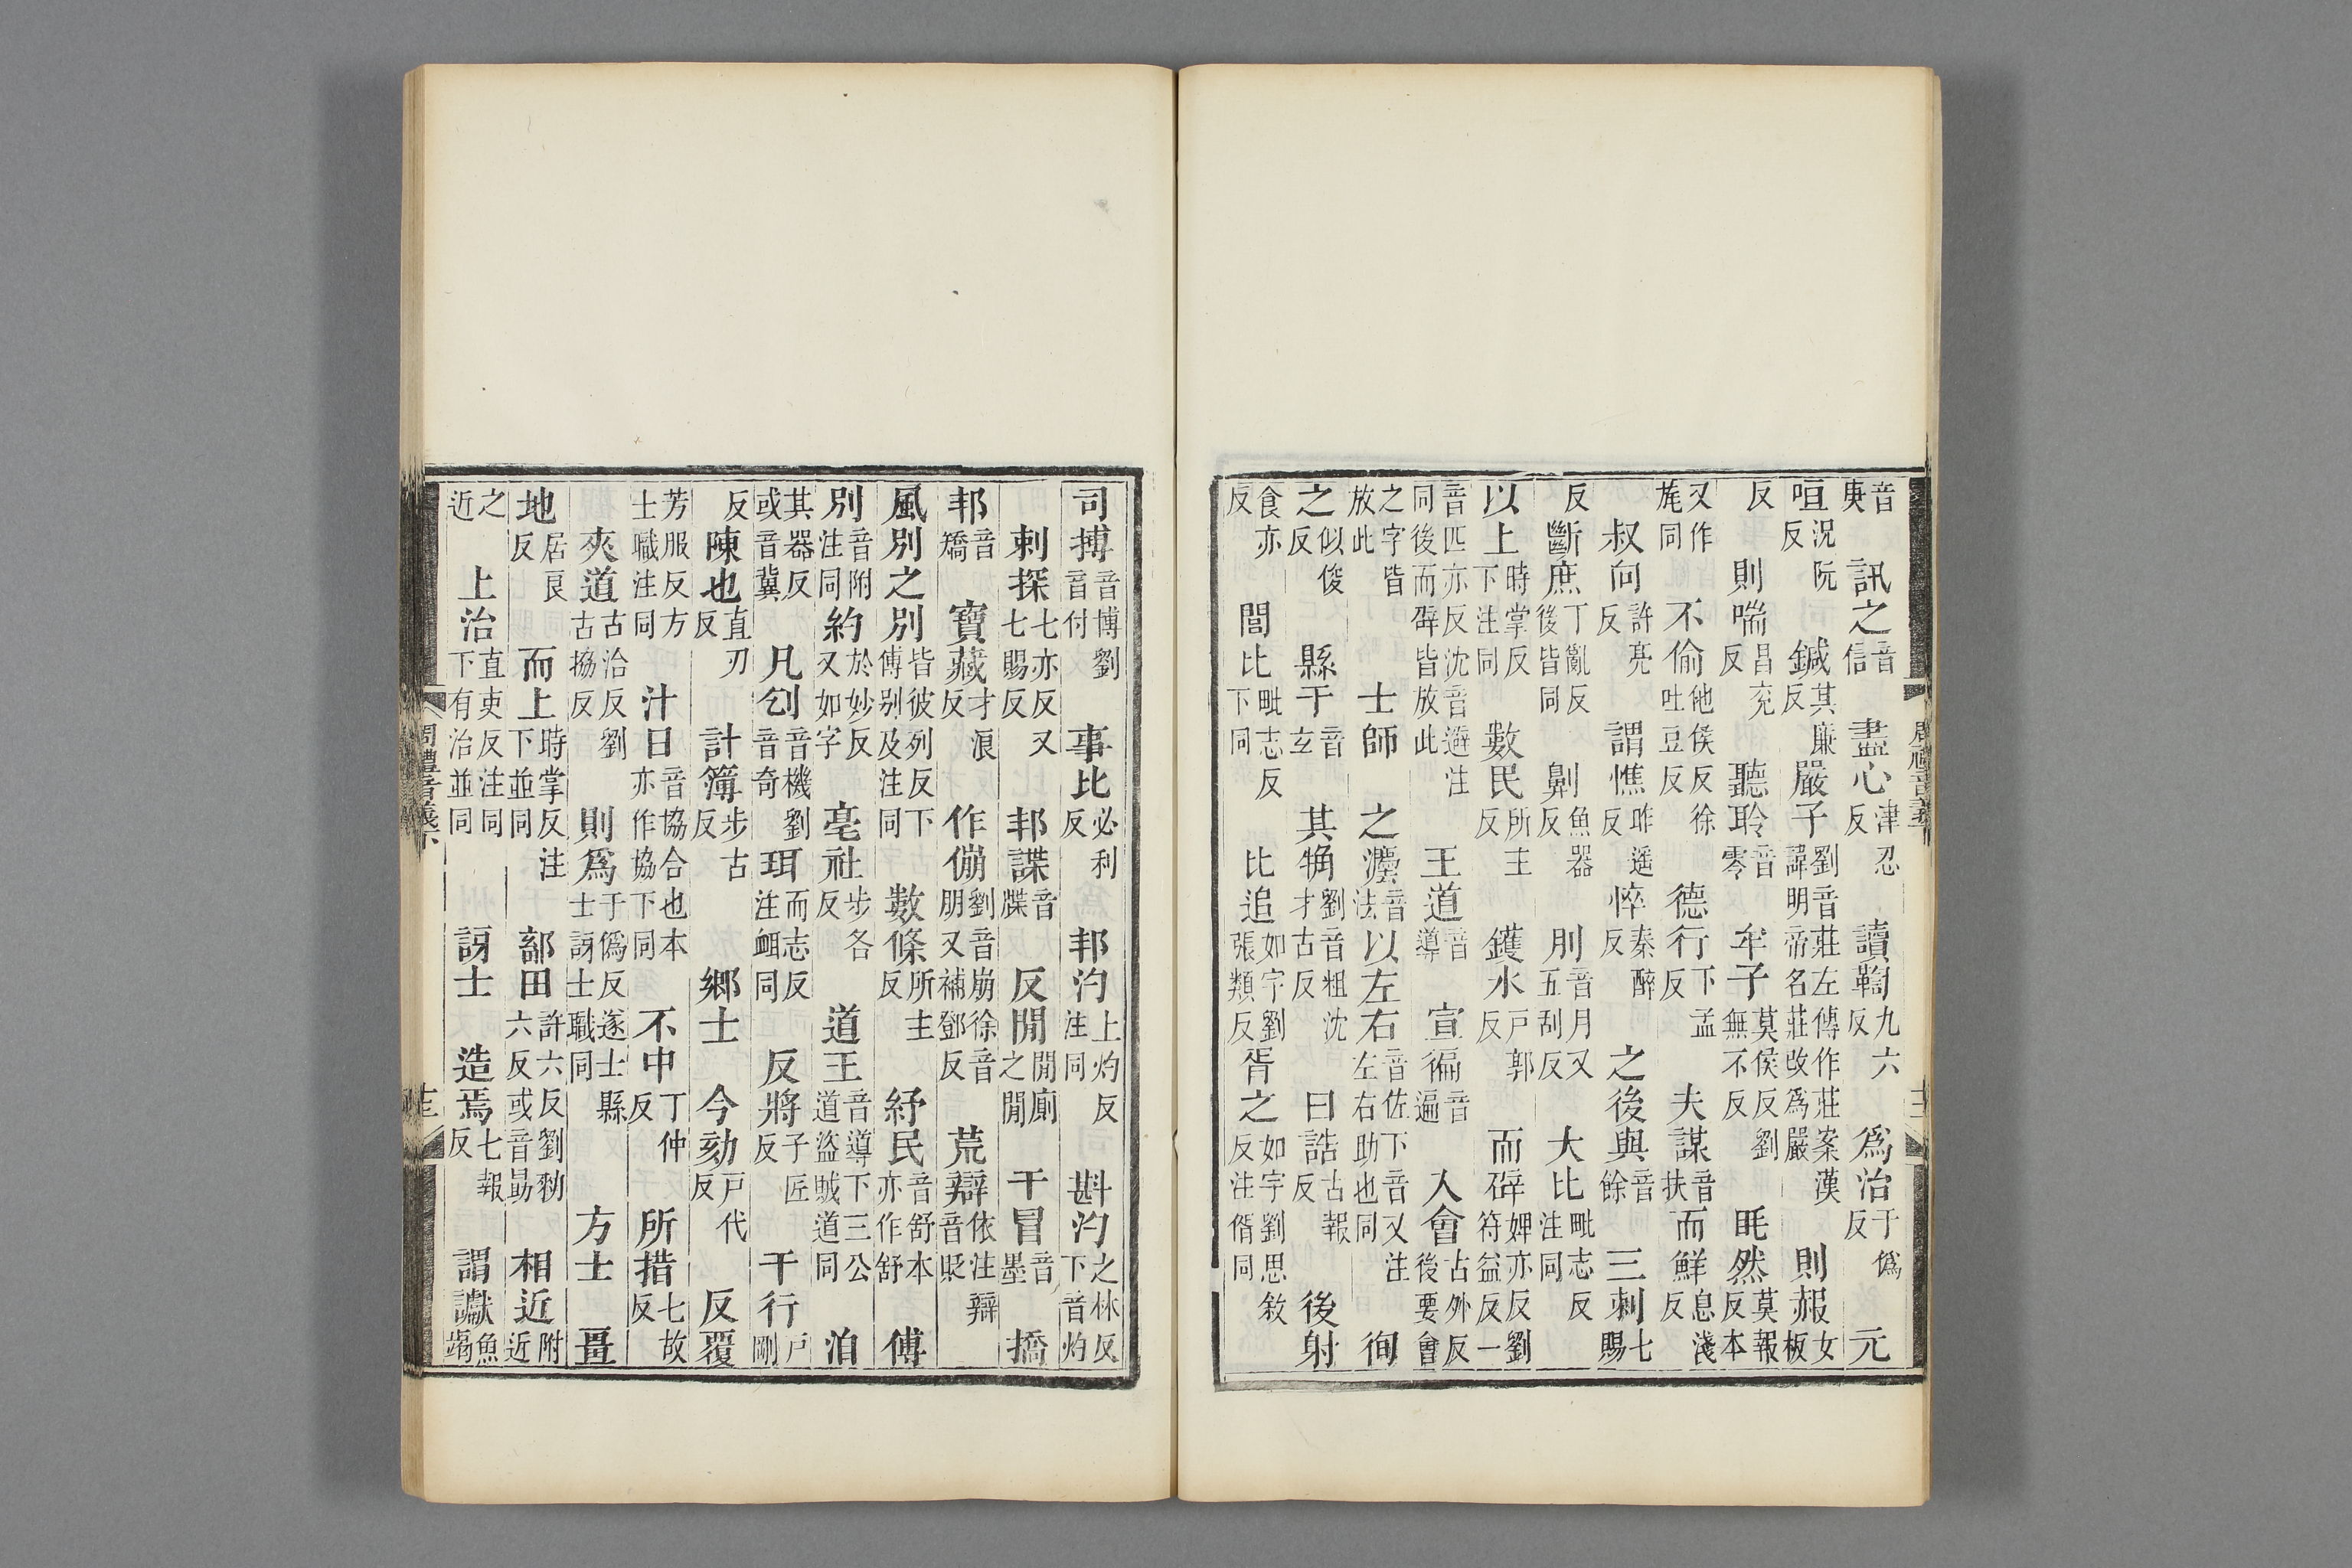 音庚訊之音信盡心津忍反讀鞫九六反爲治于僞反元
咺況阮反鍼其廉反嚴子劉音莊左傳作莊案漢諱明帝名莊改爲嚴則赧女板
反則喘昌兖反聽聆音零牟子莫侯反劉無不反眊然莫報反本
又作旄同不偷他侯反徐吐豆反德行下孟反夫謀音扶而鮮息淺反
叔向許亮反謂憔昨遥反悴秦醉反之後與音餘三刺七賜
反斷庶丁亂反後皆同劓魚器反刖音月又五刮反大比毗志反注同
以上時掌反下注同數民所主反鑊水戸郭反而辟婢亦反劉符益反一
音匹亦反沈音避注同後而辟皆放此王道音導宣徧音遍入會古外反後要會
之字皆放此士師之灋音法以左右音佐下音又注左右助也同徇
之似俊反縣于音玄其觕劉音粗沈才古反曰誥古報反後射
食亦反閭比毗志反下同比追如字劉張類反胥之如字劉思敘反注偦同
周禮音義下
十三
司搏音博劉音付事比必利反邦汋上灼反注同斟汋之林反下音灼
刺探七亦反又七賜反邦諜音牒反閒閒廁之閒干冒音墨撟
邦音矯寶藏才浪反作傰劉音崩徐音朋又補鄧反荒辯依注辯音貶
風別之別皆彼列反下傅别及注同數條所主反紓民音舒本亦作舒傅
別音附注同約於妙反又如字亳社步各反道王音導下三公道盜賊道同洎
其器反或音冀凡刉音機劉音奇珥而志反注衈同反將子匠反干行戸剛
反陳也直刃反計簿步古反鄉士今劾戸代反反覆
芳服反方士職注同汁日音協合也本亦作協下同不中丁仲反所措七故反
夾道古洽反劉古協反則爲于僞反遂士縣士訝士職同方士畺
地居良反而上時掌反注下並同鄐田許六反劉勑六反或音勗相近附近
之近上治直吏反注同下有治並同訝士造焉七報反謂讞魚竭
周禮音義下